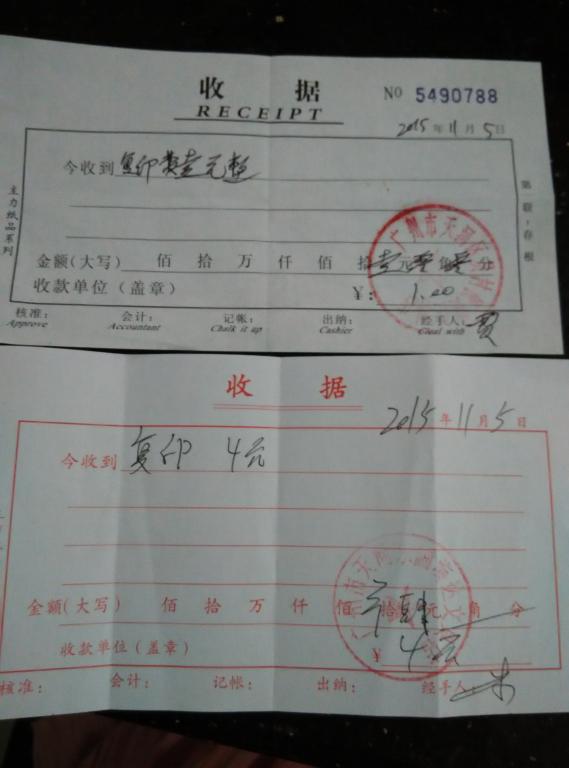 收 据
RECEIPT
NO 5490788
2015 年 11 月 5 日
今收到 复印费壹元整
金额(大写) 佰 拾 万 仟 佰 拾 壹 元 零 角 零 分
收款单位(盖章) ¥: 1.00
核准: 会计: 记帐: 出纳: 经手人: 贾
Approve Accountant Chalk it up Cashier Cleal with
主力纸品系列
广州市天河区
收 据
2015 年 11 月 5 日
今收到 复印 4元
金额(大写) 佰 拾 万 仟 佰 拾 肆 元 角 分
收款单位(盖章) ¥ 4元
核准: 会计: 记帐: 出纳: 经手人